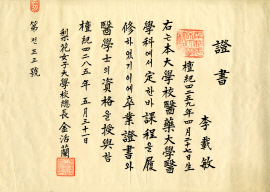 證書
李載敏
檀紀四二五九年四月二十七日生
右는本大學校醫藥大學醫
學科에서定한바課程을履
修하였기이에卒業證書와
醫學士의資格을授與함
檀紀四二八五年 五月三十一日
梨花女子大學校總長 金活蘭